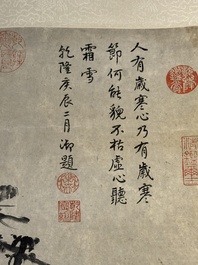 人有歲寒心乃有歲寒
節何能貌不枯虛心聽
霜雪
乾隆庚辰二月御題